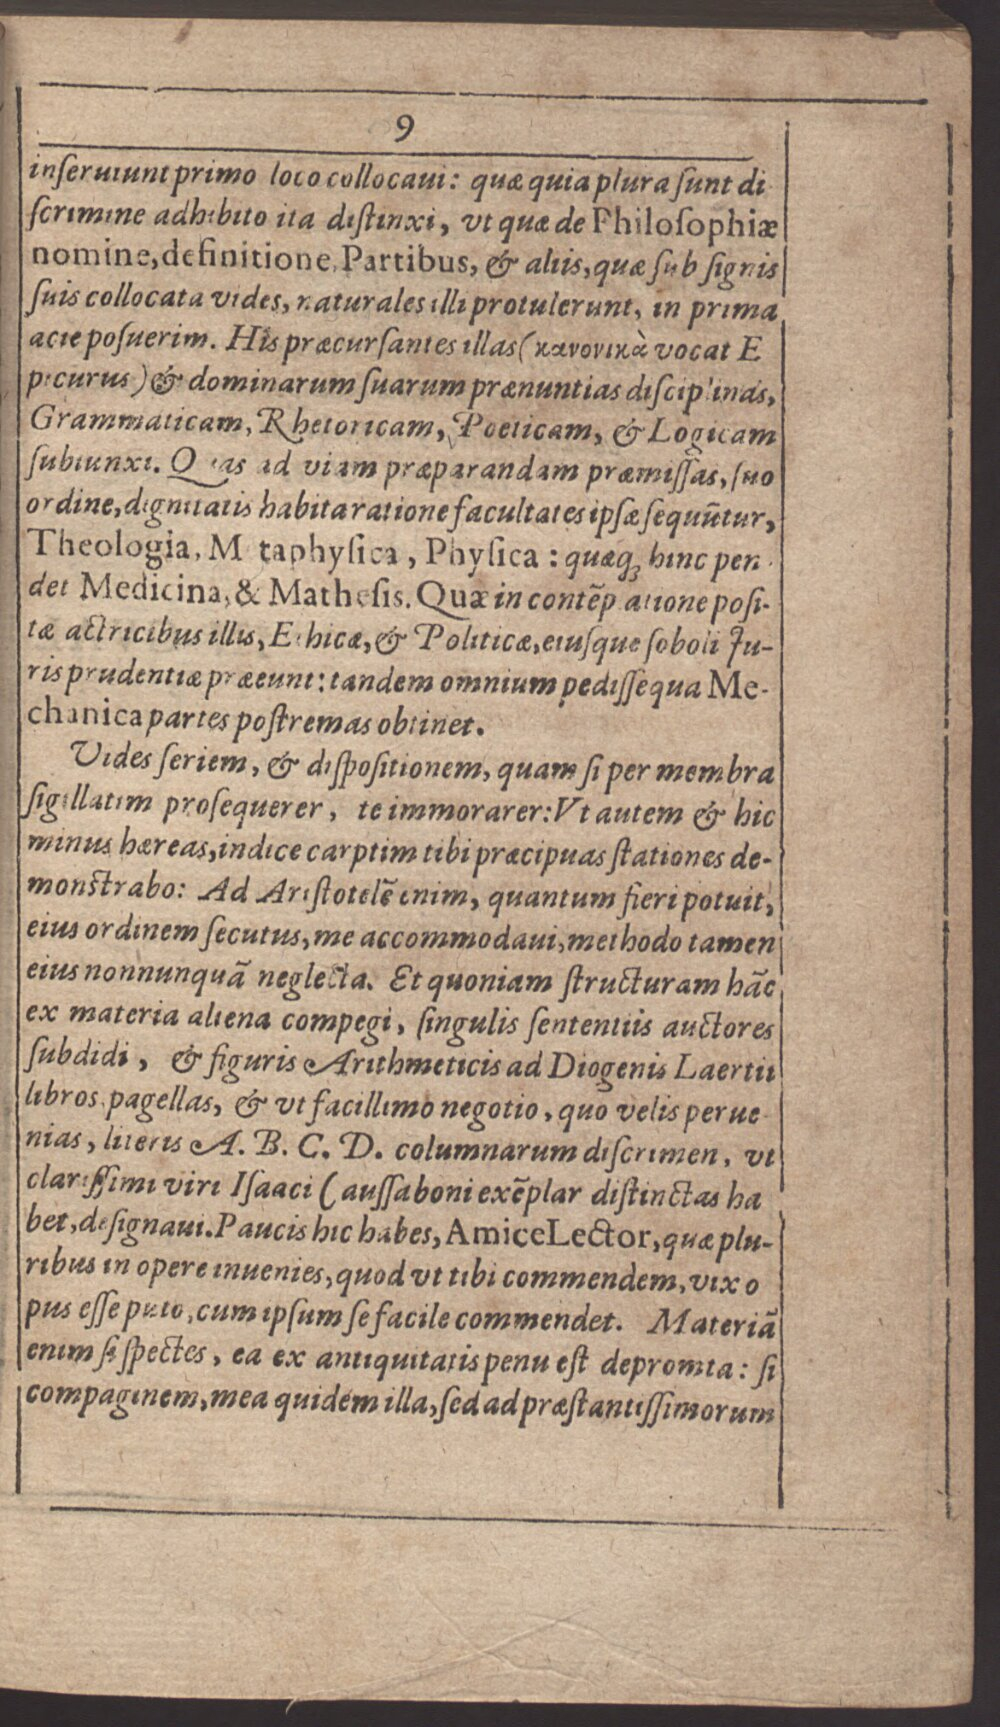 9
inſeruiunt primo loco collocaui: quæ quia plura ſunt di
ſcrimine adhibito ita diſtinxi, vt quæ de Philoſophiæ
nomine, definitione, Partibus, & aliis, quæ ſub ſignis
ſuis collocata vides, naturales illi protulerunt, in prima
acie poſuerim. His præcurſantes illas (κανονικὰ vocat E
picurus) & dominarum ſuarum prænuntias diſciplinas,
Grammaticam, Rhetoricam, Poeticam, & Logicam
ſubiunxi. Quas ad viam præparandam præmiſſas, ſuo
ordine, dignitatis habita ratione facultates ipſæ ſequũtur,
Theologia, M taphyſica, Phyſica: quæq; hinc pen
det Medicina, & Matheſis. Quæ in contẽp atione poſi-
tæ actricibus illis, Ethicæ, & Politicæ, eiuſque ſoboli Ju-
risprudentiæ præeunt: tandem omnium pediſſequa Me-
chanica partes poſtremas obtinet.
Vides ſeriem, & diſpoſitionem, quam ſi per membra
ſigillatim proſequerer, te immorarer: Vt autem & hic
minus hæreas, indice carptim tibi præcipuas ſtationes de-
monſtrabo: Ad Ariſtotelẽ enim, quantum fieri potuit,
eius ordinem ſecutus, me accommodaui, methodo tamen
eius nonnunquã neglecta. Et quoniam ſtructuram hãc
ex materia aliena compegi, ſingulis ſententiis auctores
ſubdidi, & figuris Arithmeticis ad Diogenis Laertii
libros, pagellas, & vt facillimo negotio, quo velis perue
nias, literis A. B. C. D. columnarum diſcrimen, vt
clariſſimi viri Iſaaci Cauſſaboni exẽplar diſtinctas ha
bet, deſignaui. Paucis hic habes, Amice Lector, quæ plu-
ribus in opere inuenies, quod vt tibi commendem, vix o
pus eſſe puto, cum ipſum ſe facile commendet. Materiã
enim ſi ſpectes, ea ex antiquitatis penu eſt depromta: ſi
compaginem, mea quidem illa, ſed ad præſtantiſſimorum